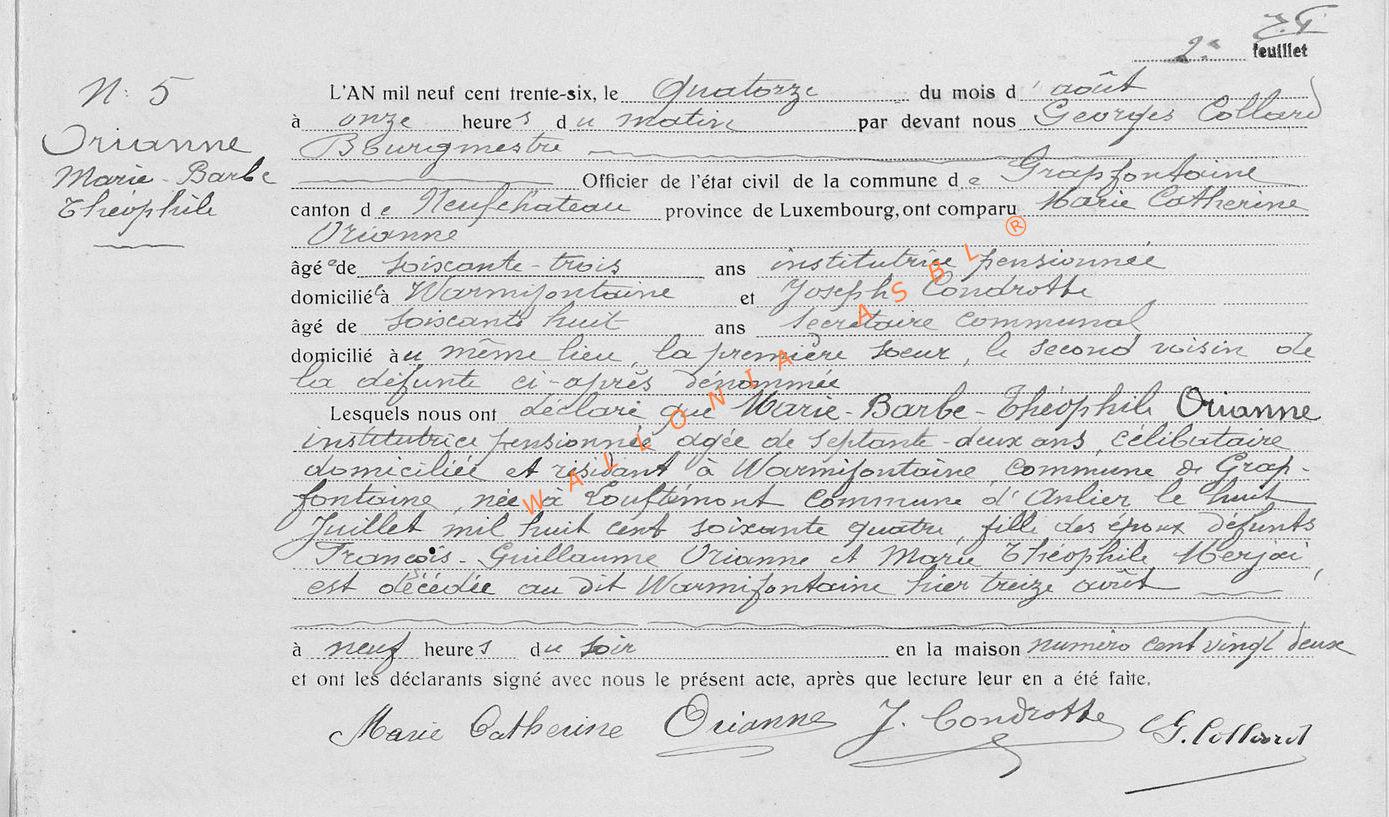 2e feuillet
N: 5
Orianne
Marie-Barbe
Théophile
L'AN mil neuf cent trente-six, le quatorze du mois d'août
à onze heures du matin par devant nous Georges Collard
Bourgmestre
Officier de l'état civil de la commune de Grapfontaine
canton de Neufchateau province de Luxembourg, ont comparu Marie Catherine
Orianne
âgée de soixante-trois ans institutrice pensionnée
domiciliée à Warmifontaine et Joseph Condrotte
âgé de soixante huit ans secrétaire communal
domicilié au même lieu, la première soeur, le second voisin de
la défunte ci-après dénommée
Lesquels nous ont déclaré que Marie-Barbe-Théophile Orianne
institutrice pensionnée agée de septante-deux ans, célibataire
domiciliée et résidant à Warmifontaine, commune de Grap-
fontaine, née à Louftémont commune d'Anlier le huit
Juillet mil huit cent soixante quatre, fille des époux défunts
François-Guillaume Orianne et Marie Théophile Merjai,
est décédée au dit Warmifontaine hier treize août
à neuf heures du soir en la maison numéro cent vingt deux
et ont les déclarants signé avec nous le présent acte, après que lecture leur en a été faite.
Marie Catherine Orianne J. Condrotte G. Collard
WALLONIA ASBL ®